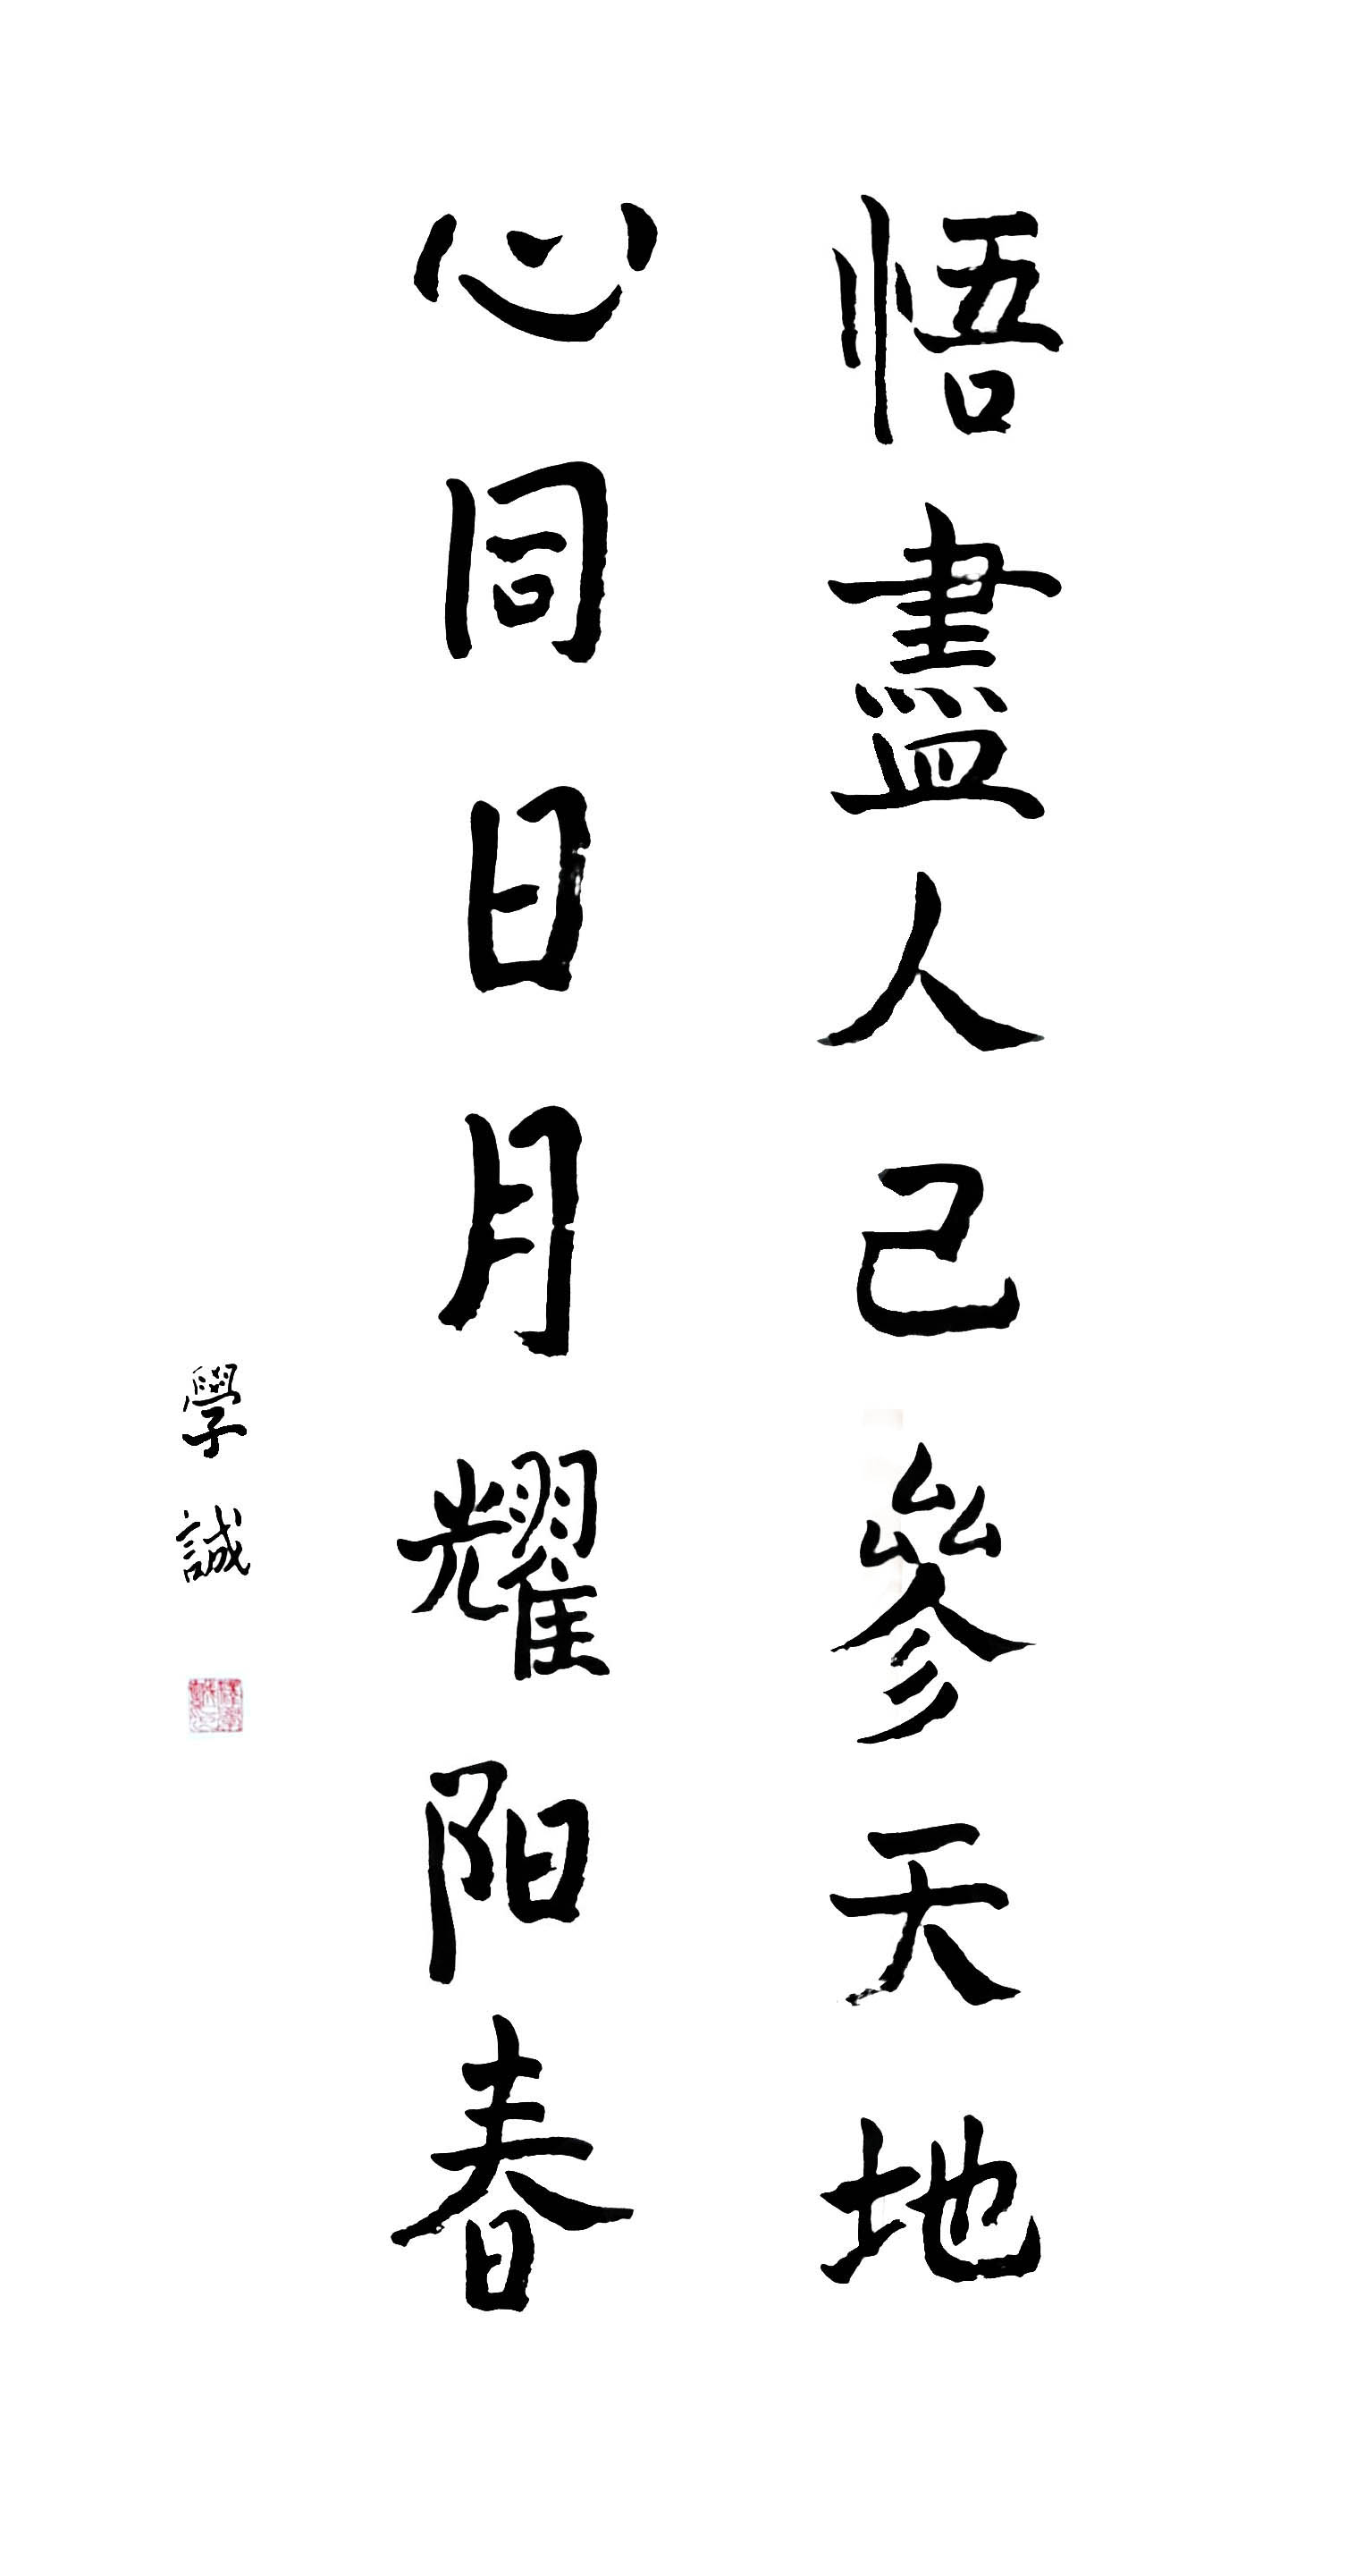 悟盡人己參天地
心同日月耀阳春
學誠